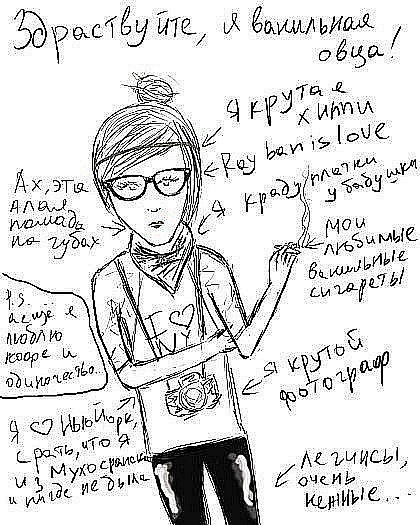 Здраствуйте, я ванильная
овца!
Я крутая
хиппи
Ray ban is love
Я краду платки
у бабушки
Ах, эта
алая
помада
на губах
мои
любимые
ванильные
сигареты
P.S.
а ещё я
люблю
кофе и
одиночество.
I ♡
NY
Я крутой
фотограф
Я ♡ Нью Йорк,
срать, что я
из Мухосранска
и нигде не была
легинсы,
очень